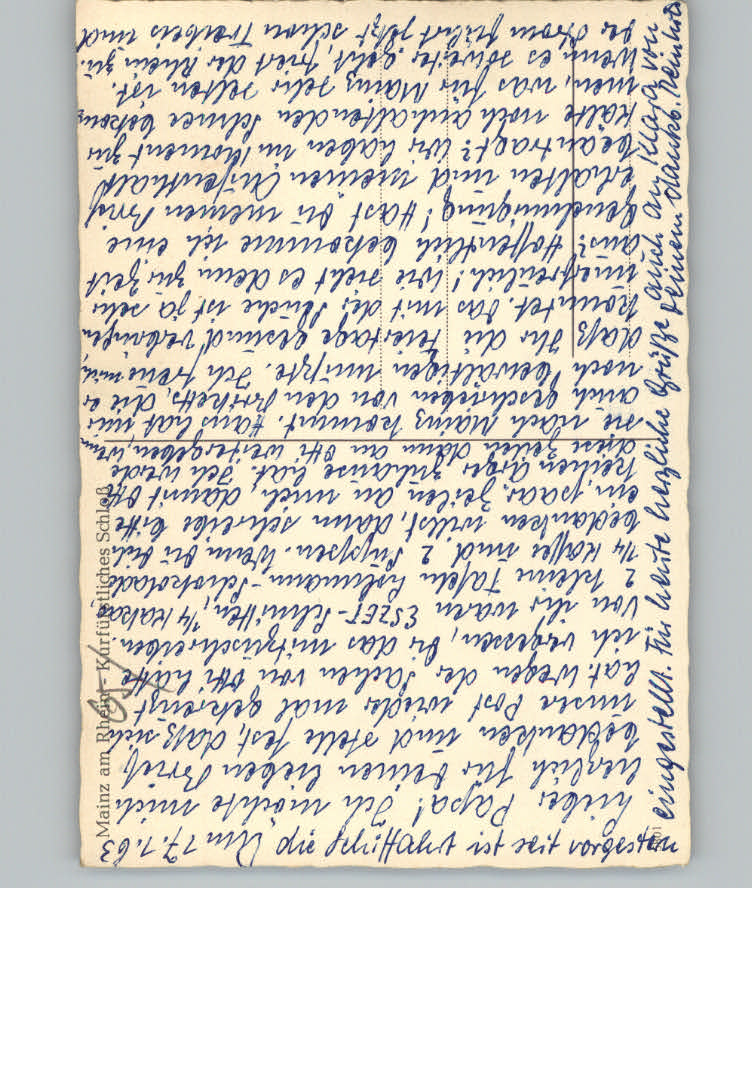 17.1.63
Lieber Papa! Ich möchte mich
herzlich für Deinen lieben Brief
bedanken und stelle fest, daß sich
unsere Post wieder mal gekreuzt
hat. Wegen der Sachen von Otti hatte
ich vergessen, Dir das mitzuschreiben.
Von ihr waren ESZET-Schnitten, 1/4 Kakao,
2 kleine Tafeln Schokolade
1/4 Kaffee und 2 Suppen. Wenn Du Dich
bedanken willst, dann schreibe bitte
ein paar Zeilen an mich, damit Otti
keinen Ärger zuhause hat. Ich werde
diese Zeilen dann an Otti weitergeben, wenn
sie nach Mainz kommt. Hans hat mir
auch geschrieben von den Briketts, die er
noch bewältigen mußte. Ich freue mich,
daß Ihr die Feiertage gesund verbringen
konntet. Das mit der Seuche ist ja sehr
unerfreulich! Wie sieht es denn zur Zeit
aus? Hoffentlich bekomme ich eine
Genehmigung! Hast Du meinen Brief
erhalten und meinen Aufenthalt
beantragt? Wir haben im Moment zur
Kälte noch anhaltenden Schnee bekom-
men, was für Mainz sehr selten ist.
Wenn es so weiter geht, friert der Rhein zu.
Der Strom führt jetzt schon Treibeis und
die Schiffahrt ist seit vorgestern
eingestellt. Für heute herzliche Grüße auch an Klara von
Deinem dankb.
Mainz am Rhein - Kurfürstliches Schloß